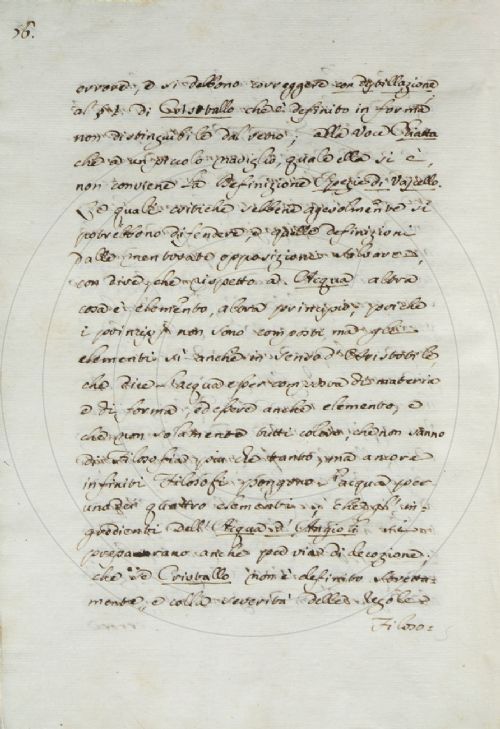 56.
errore, e si debbono correggere con distillazione
di Cristallo che è definito in forma
non distinguibile dal vetro; alla voce Piatta
che è un piccolo naviglio, quale ella si è,
non conviene la Definizione Spezie di Vascello.
Le quali critiche sebbene agevolmente si
potrebbono difendere, e quelle definizioni
dalle mentovate opposizioni salvare,
con dire, che rispetto a Acqua altra
cosa è elemento, altra principio, poiche
i principj non sono composti ma gli
elementi si anche in senso d'Aristotile
che dice l'acqua esser composta di materia
e di forma, ed essere anche elemento, e
che non solamente tutti coloro, che non sanno
di Filosofia più che tanto, ma ancora
infiniti Filosofi pongono l'acqua per
uno dei quattro elementi: che gl'in-
gredienti dell'Acqua d'Angioli si
preparano anche per via di decozione;
che se Cristallo non è definito stretta-
mente, e colla severità delle Regole
Filoso-